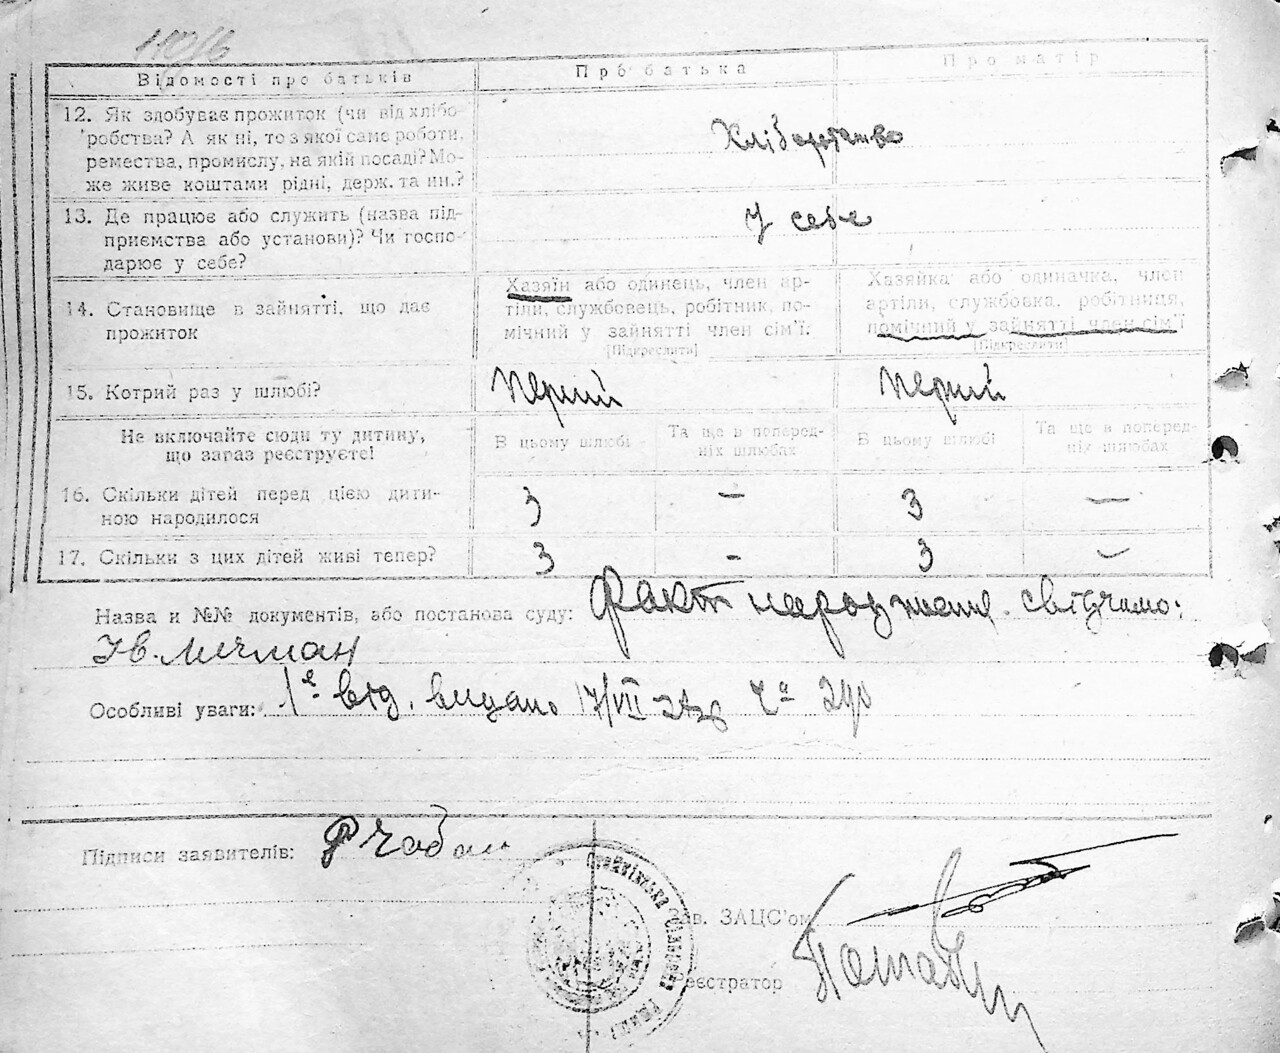 110/6
Відомості про батьків
Про батька
Про матір
12. Як здобуває прожиток (чи від хлібо-
робства? А як ні, то з якої саме роботи,
ремества, промислу, на якій посаді? Мо-
же живе коштами рідні, держ. та ин.?
Хліборобство
13. Де працює або служить (назва під-
приємства або установи)? Чи госпо-
дарює у себе?
У себе
14. Становище в зайнятті, що дає
прожиток
Хазяїн або одинець, член ар-
тіли, службовець, робітник, по-
мічний у зайнятті член сім'ї.
[Підкреслити]
Хазяйка або одиначка, член
артіли, службовка, робітниця,
помічний у зайнятті член сім'ї
[Підкреслити]
15. Котрий раз у шлюбі?
Перший
Перший
Не включайте сюди ту дитину,
що зараз реєструєте!
В цьому шлюбі
Та ще в поперед-
ніх шлюбах
В цьому шлюбі
Та ще в поперед-
ніх шлюбах
16. Скільки дітей перед цією дити-
ною народилося
3 — 3 —
17. Скільки з цих дітей живі тепер?
3 - 3 —
Назва и №№ документів, або постанова суду: Факт народження свідчимо:
Ів.
Особливі уваги: 1е від. видано 17/VII
Підписи заявителів: Р Чабан
Зав. ЗАЦС'ом
Реєстратор